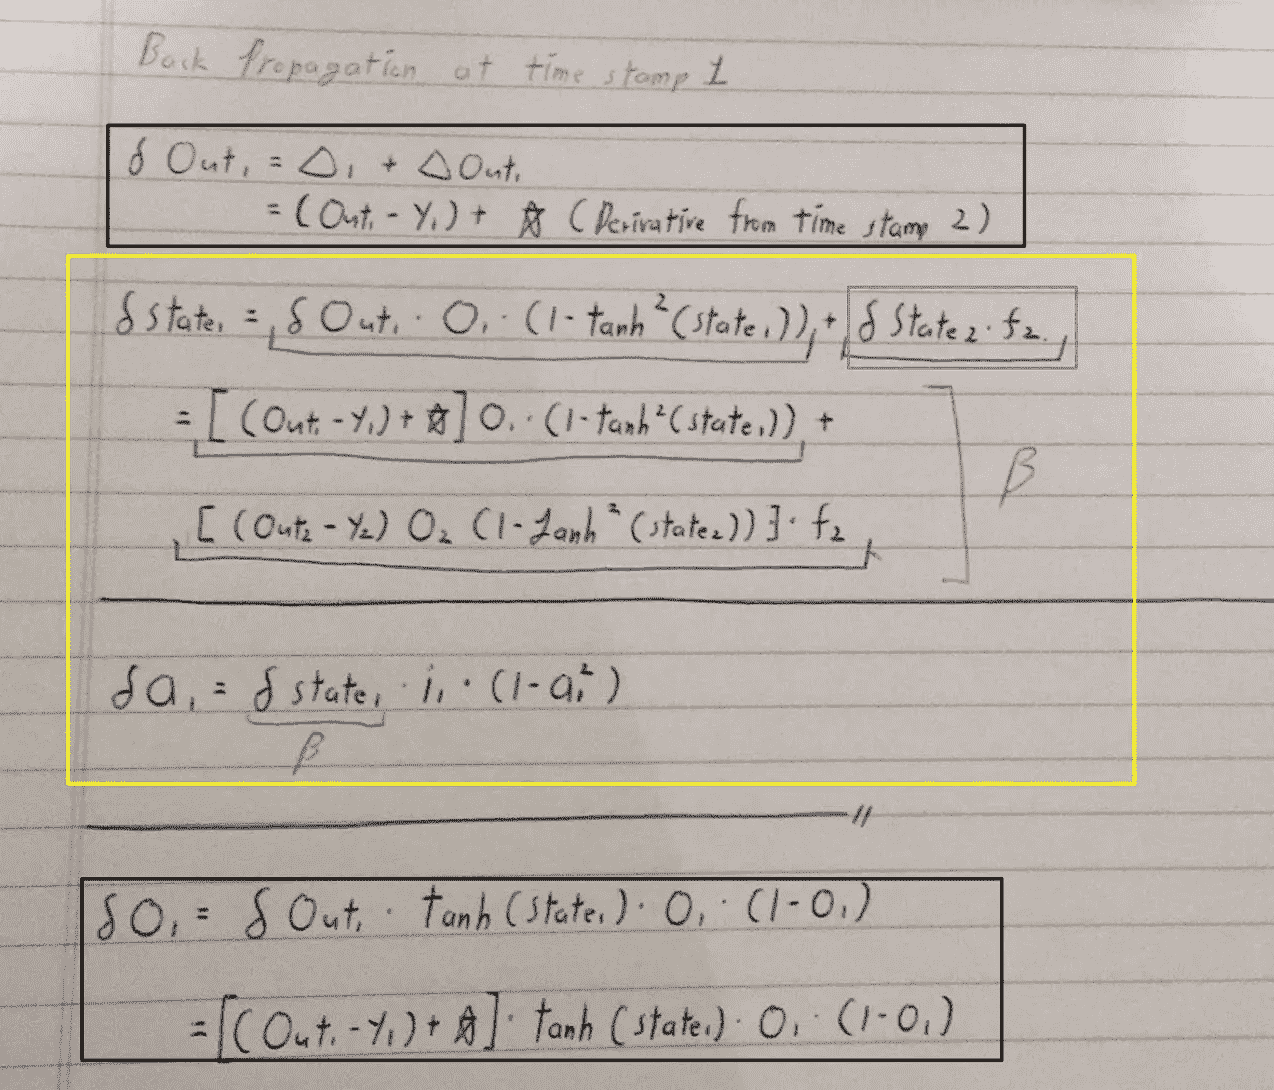 Back propagation at time stamp 1
δ Out₁ = △₁ + △Out₁
= (Out₁ - Y₁) + ☆ (Derivative from time stamp 2)
δ state₁ = δ Out₁ · O₁ · (1 - tanh²(state₁)) + δ State₂ · f₂.
= [(Out₁ - Y₁) + ☆] O₁ · (1 - tanh²(state₁)) +
[(Out₂ - Y₂) O₂ (1 - tanh²(state₂))] · f₂
β
δa₁ = δ state₁ · i₁ · (1 - a₁²)
β
δO₁ = δ Out₁ · tanh(state₁) · O₁ · (1 - O₁)
= [(Out₁ - Y₁) + ☆] · tanh(state₁) · O₁ · (1 - O₁)